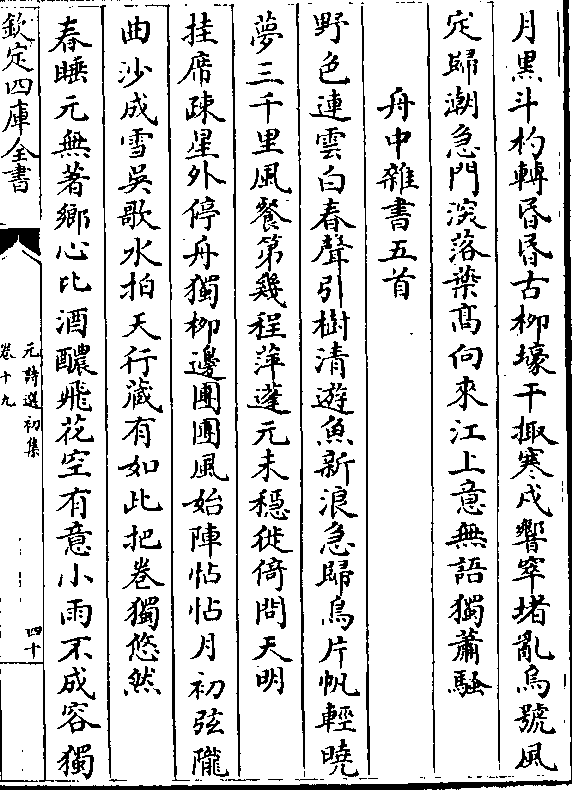 月黒斗杓轉昏昏古柳壕干掫寒戍響窣堵亂烏號風
定歸潮急門淡落葉髙向來江上意無語獨蕭騷
舟中雜書五首
野色連雲白春聲引樹清遊魚新浪急歸鳥片帆輕曉
夢三千里風餐第幾程萍蓬元未穏徙倚問天明
挂席疎星外停舟獨栁邊團團風始陣帖帖月初弦隴
曲沙成雪吳歌水拍天行藏有如此把卷獨悠然
春睡元無著鄉心比酒醲飛花空有意小雨不成容獨
欽定四庫全書
元詩選初集
卷十九
四十